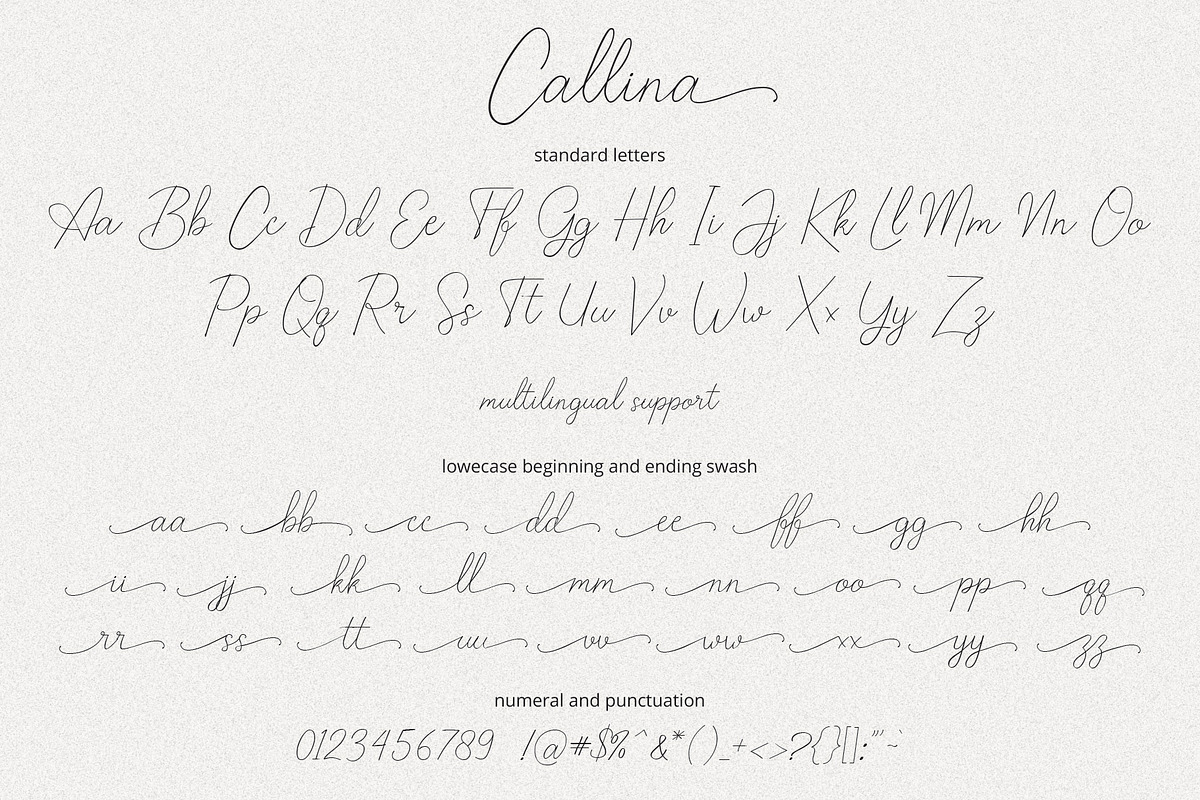 Callina
standard letters
Aa Bb Cc Dd Ee Ff Gg Hh Ii Jj Kk Ll Mm Nn Oo
Pp Qq Rr Ss Tt Uu Vv Ww Xx Yy Zz
multilingual support
lowecase beginning and ending swash
aa bb cc dd ee ff gg hh
ii jj kk ll mm nn oo pp qq
rr ss tt uu vv ww xx yy zz
numeral and punctuation
0123456789 !@#$%^&*()_+<>?{}[]:"'~`